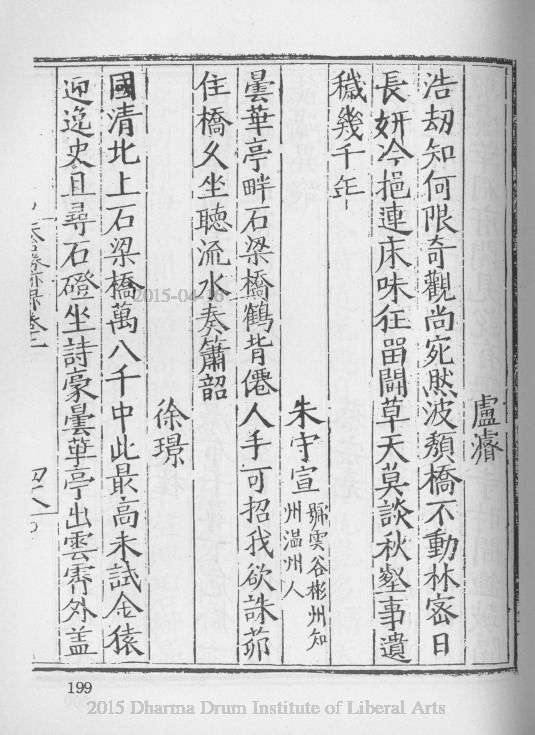 盧濬
浩刼知何限奇觀尚宛然波頹橋不動林宻日
長妍冷挹連床味狂畱鬭草天莫談秋壑事遺
穢幾千年
朱守宣 號雲谷彬州知州温州人
曇華亭畔石梁橋鶴背僊人手可招我欲誅茆
住橋久坐聽流水奏簫韶
徐璟
國清北上石梁橋萬八千中此最高未試金猿
迎逸史且尋石磴坐詩豪曇華亭出雲霄外盖
2015-04-16
199
2015 Dharma Drum Institute of Liberal Arts